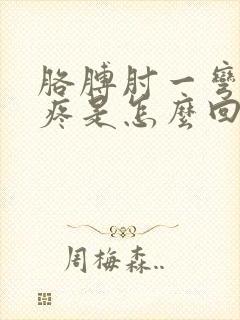 胳膊肘一彎
疼是怎麼回
周梅森..